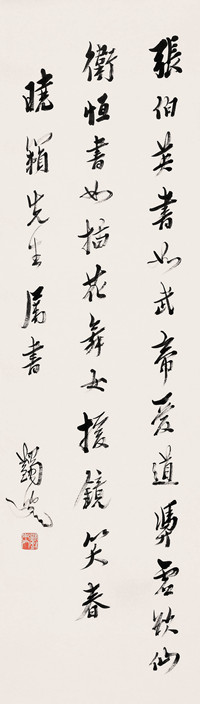 張伯英書如武帝愛道馮虛欲仙
衛恒書如插花舞女援鏡笑春
曉籟先生屬書